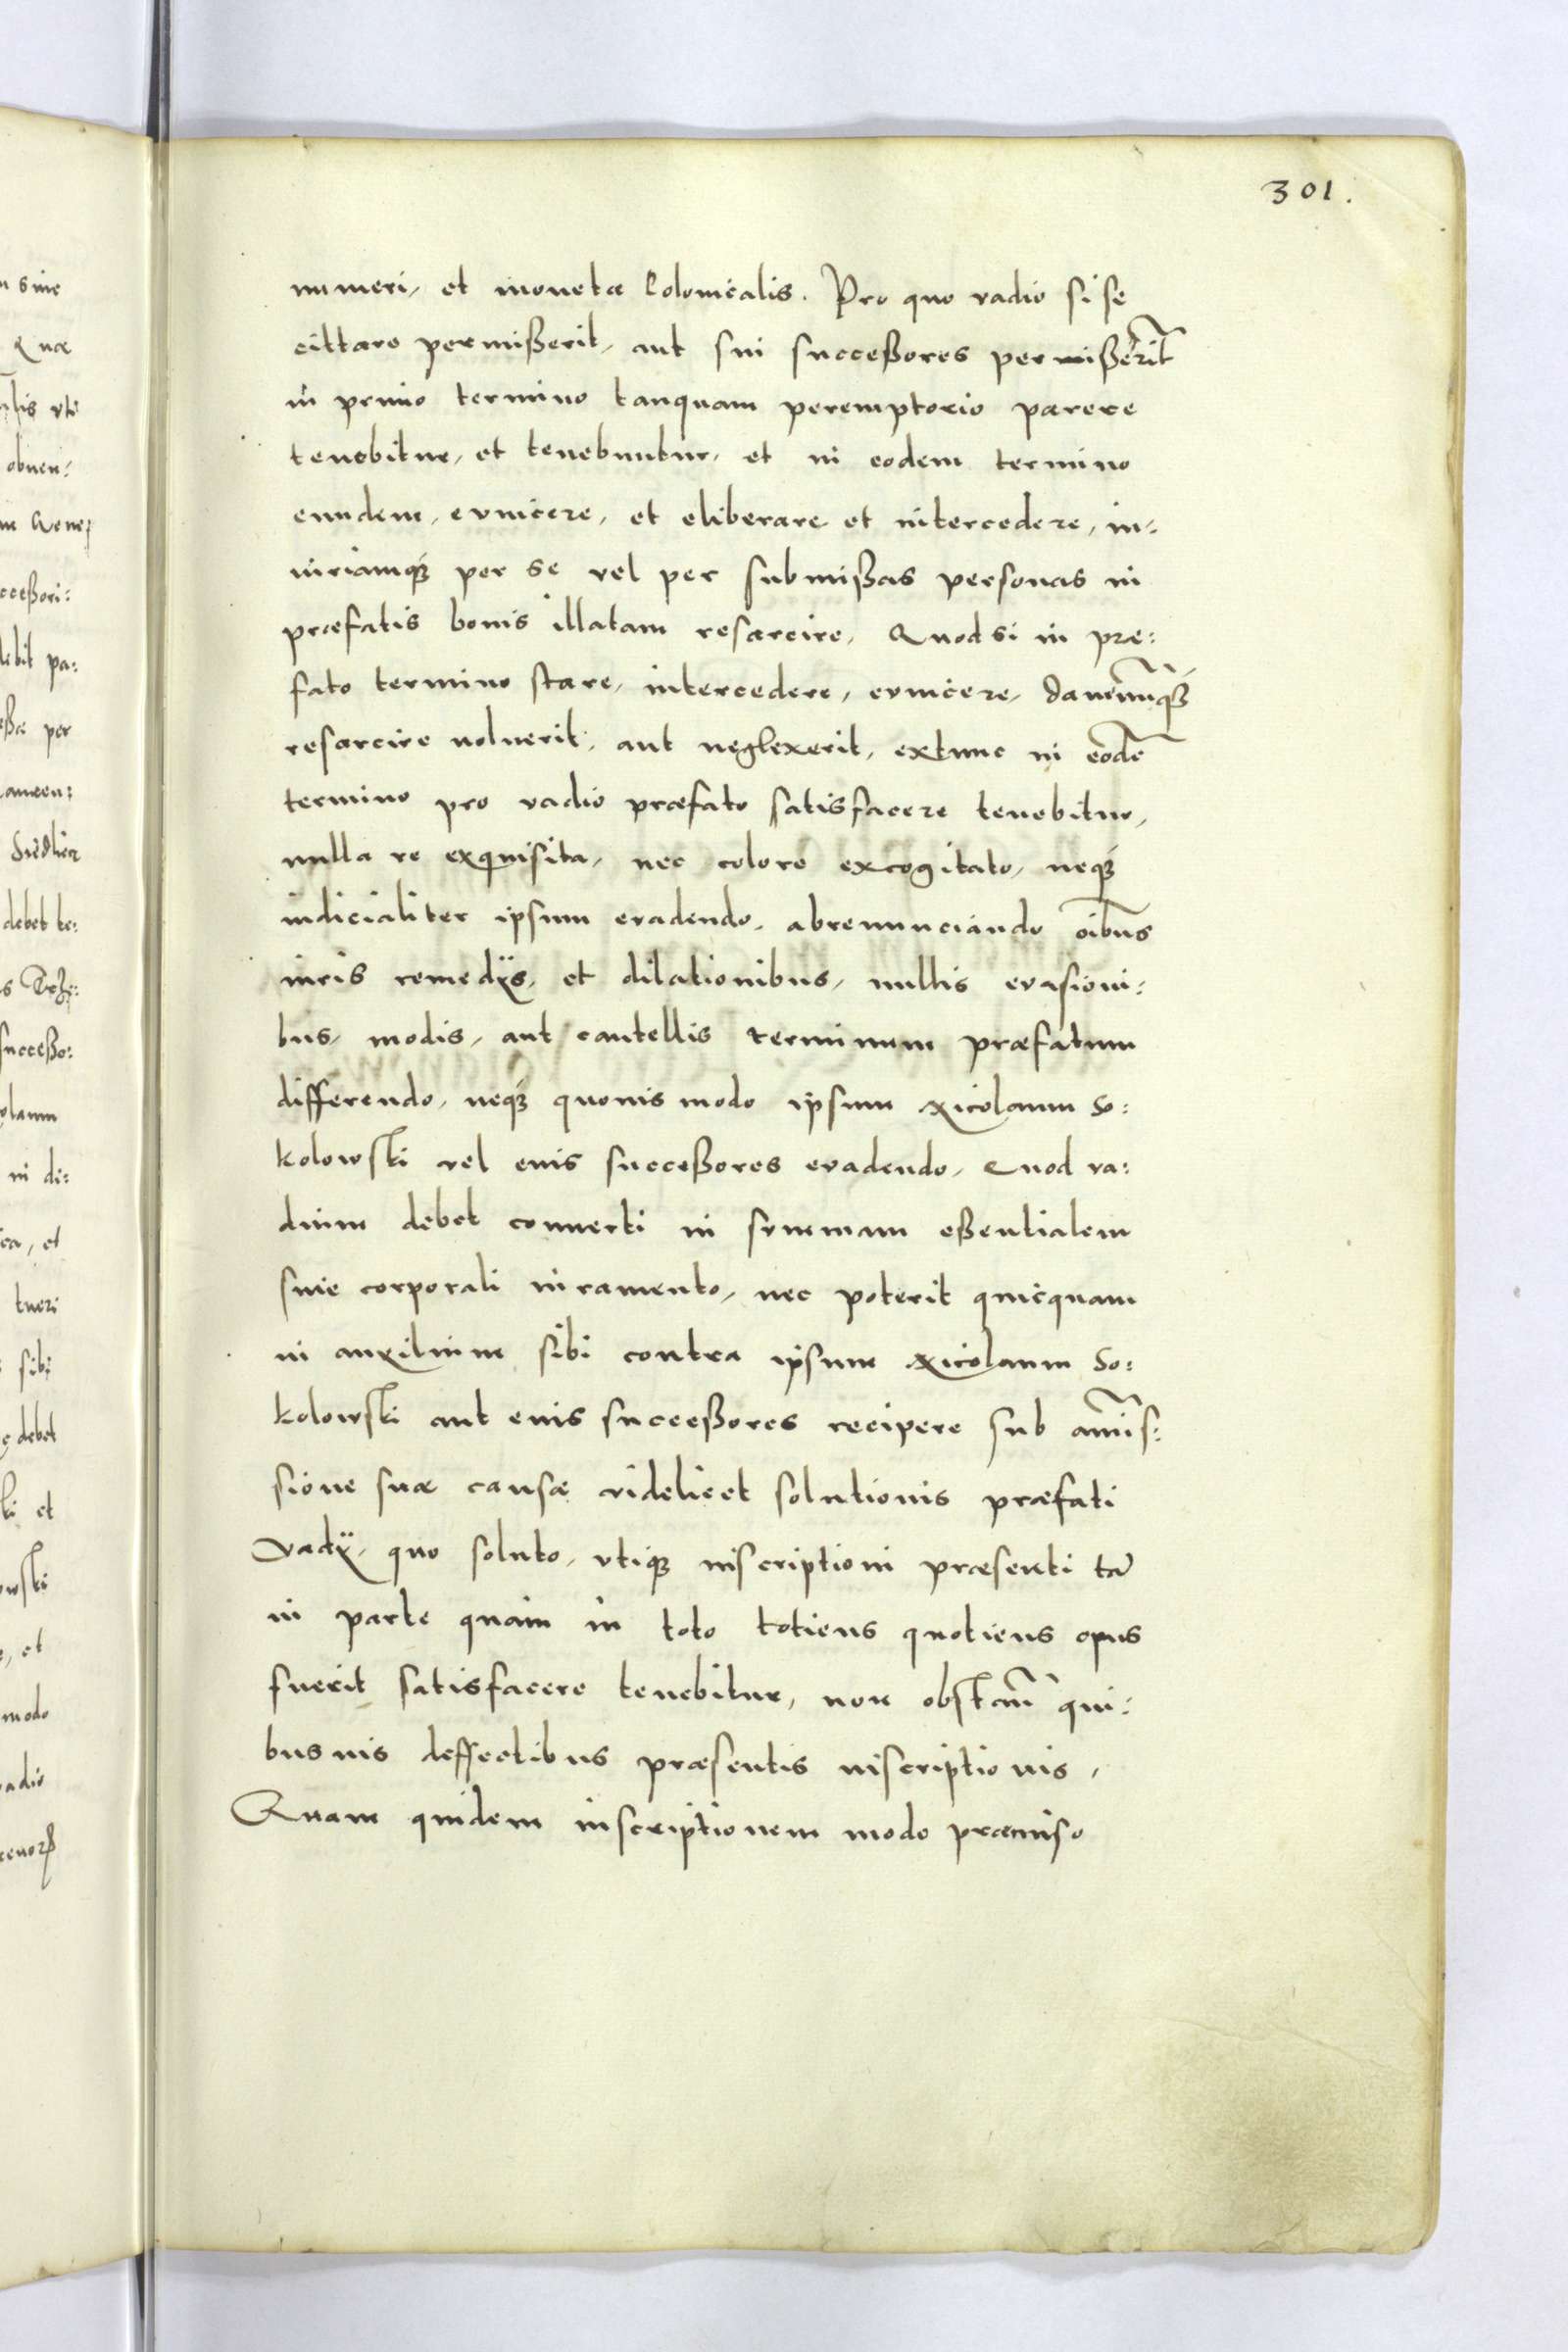 301.
numeri, et monetæ Polonicalis. Pro quo vadio si se
cittare permißerit, aut sui succeßores permißerint
in primo termino tanquam peremptorio parere
tenebitur, et tenebuntur, et in eodem termino
eundem, evincere, et eliberare et intercedere, in-
iuriamq́ per se vel per submißas personas in
præfatis bonis illatam resarcire, Quod si in præ:
fato termino stare, intercedere, evincere, damnumq́
resarcire noluerit, aut neglexerit, extunc in eodē
termino pro vadio præfato satisfacere tenebitur,
nulla re exquisita, nec colore excogitato, neq́
iudicialiter ipsum evadendo, abrenunciando oībus
iuris remedÿs, et dilationibus, nullis evasioni:
bus, modis, aut cautellis terminum præfatum
differendo, neq́ quouis modo ipsum Nicolaum So:
kolowski vel euis succeßores evadendo, Quod va:
dium debet conuerti in summam eßentialem
sine corporali iuramento, nec poterit quicquam
in auxilium sibi contra ipsum Nicolaum So:
kolowski aut euis succeßores recipere sub amis:
sione suæ causæ videlicet solutionis præfati
vadÿ, quo soluto, vtiq́ inscriptioni præsenti tā
in parte quam in toto totiens quotiens opus
fuerit satisfacere tenebitur, non obstan̄ qui:
busuis deffectibus præsentis inscriptionis,
Quam quidem inscriptionem modo præmiso